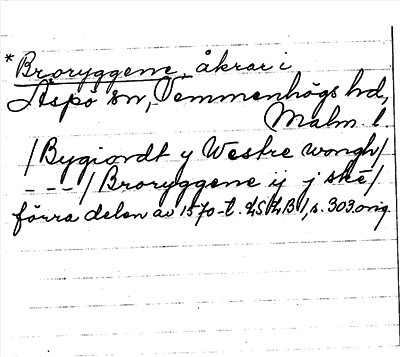 * Broryggene, åkrar i
Äspö sn, Vemmenhögs hd,
Malm. l.
/Bygiordt y Westre wongh/
- - - /Broryggene ij j ské/
förra delen av 1570-t. LSLB 1, s. 303 orig.